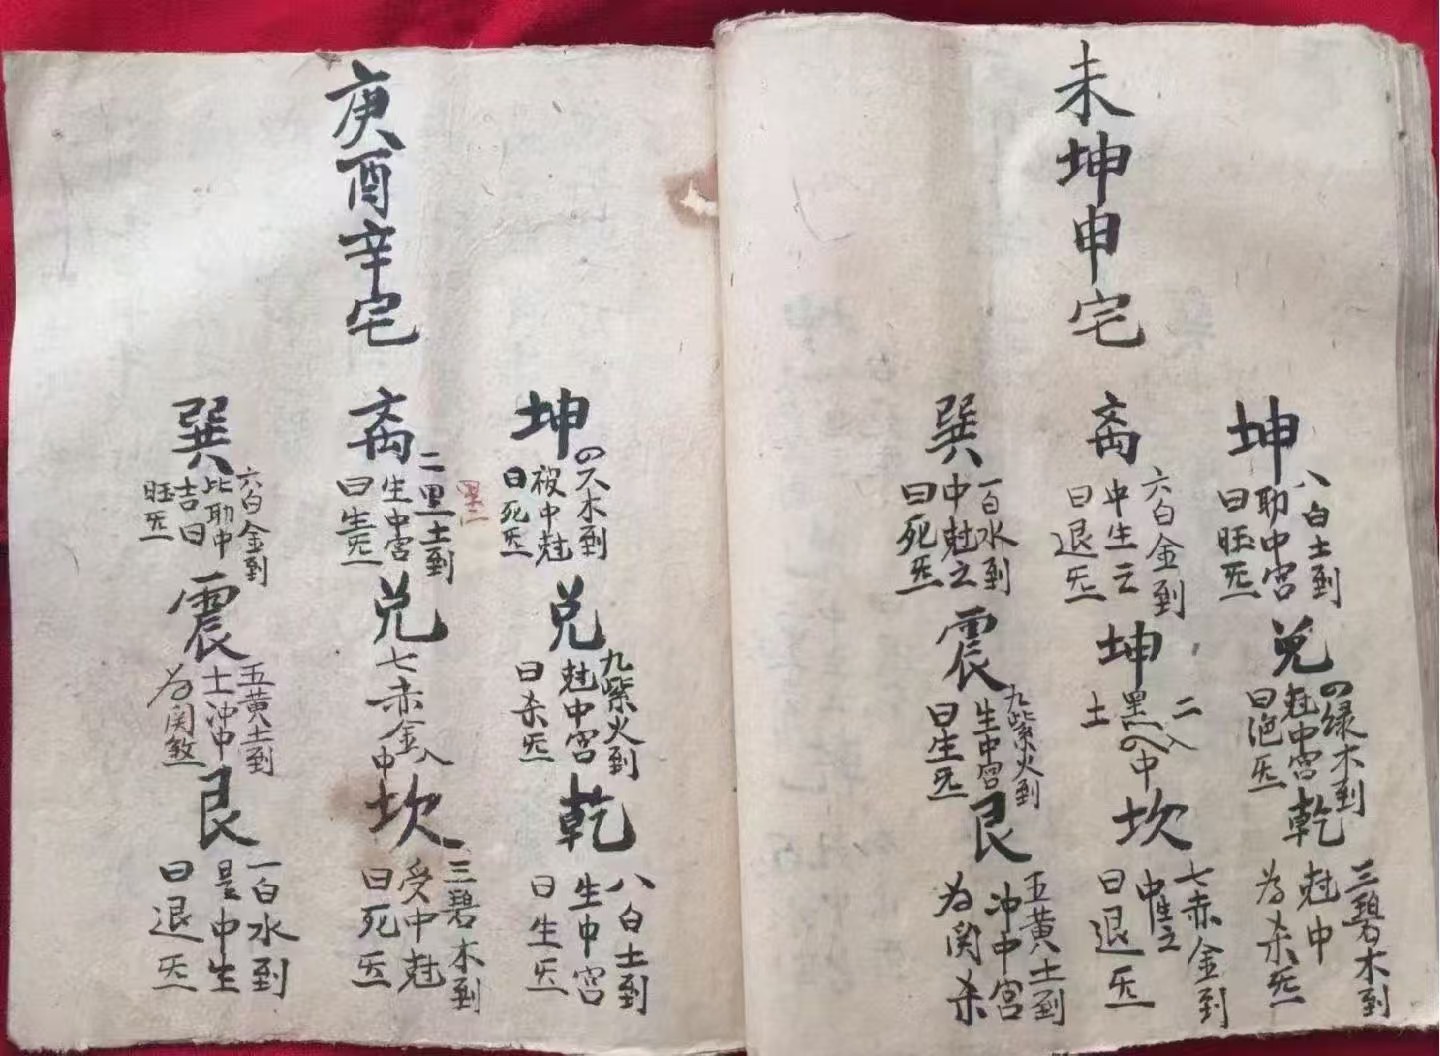 未坤申宅
坤
八白土到
助中宫
曰旺炁
兑
四绿木到
尅中宫
炁
乾
三碧木到
尅中
为杀炁
离
六白金到
中生之
曰退炁
坤
二入
黑中
土
坎
七赤金到
中生之
曰退炁
巽
一白水到
中尅之
曰死炁
震
九紫火到
生中宫
曰生炁
艮
五黄土到
冲中宫
为関杀
庚酉辛宅
坤
木到
被中尅
曰死炁
兑
九紫火到
尅中宫
曰杀炁
乾
八白土到
生中宫
曰生炁
离
二黑土到
生中宫
曰生炁
兑
七赤金入中
坎
三碧木到
受中尅
曰死炁
巽
六白金到
比助中
吉曰
旺炁
震
五黄土到
土冲中
为関煞
艮
一白水到
是中生
曰退炁